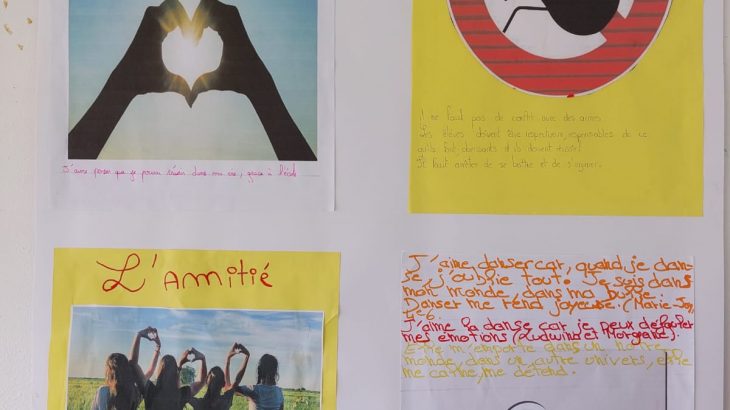 J'aime penser que je pourrai réussir dans ma vie, grâce à l'école
Il ne faut pas de conflit avec des armes.
Les élèves doivent être respectueux, responsables de ce
qu'ils font, obéissants et ils doivent réussir!
Il faut arrêter de se battre et de s'injurier.
L'Amitié
J'aime danser car, quand je dan-
se, j'oublie tout. Je suis dans
mon monde, dans ma bulle.
Danser me rend joyeuse. (Marie-Joy,
J'aime la danse car je peux défouler
mes émotions (Ludwina et Morgane).
Elle m'emporte dans un autre
monde, dans un autre univers, elle
me calme, me détend.